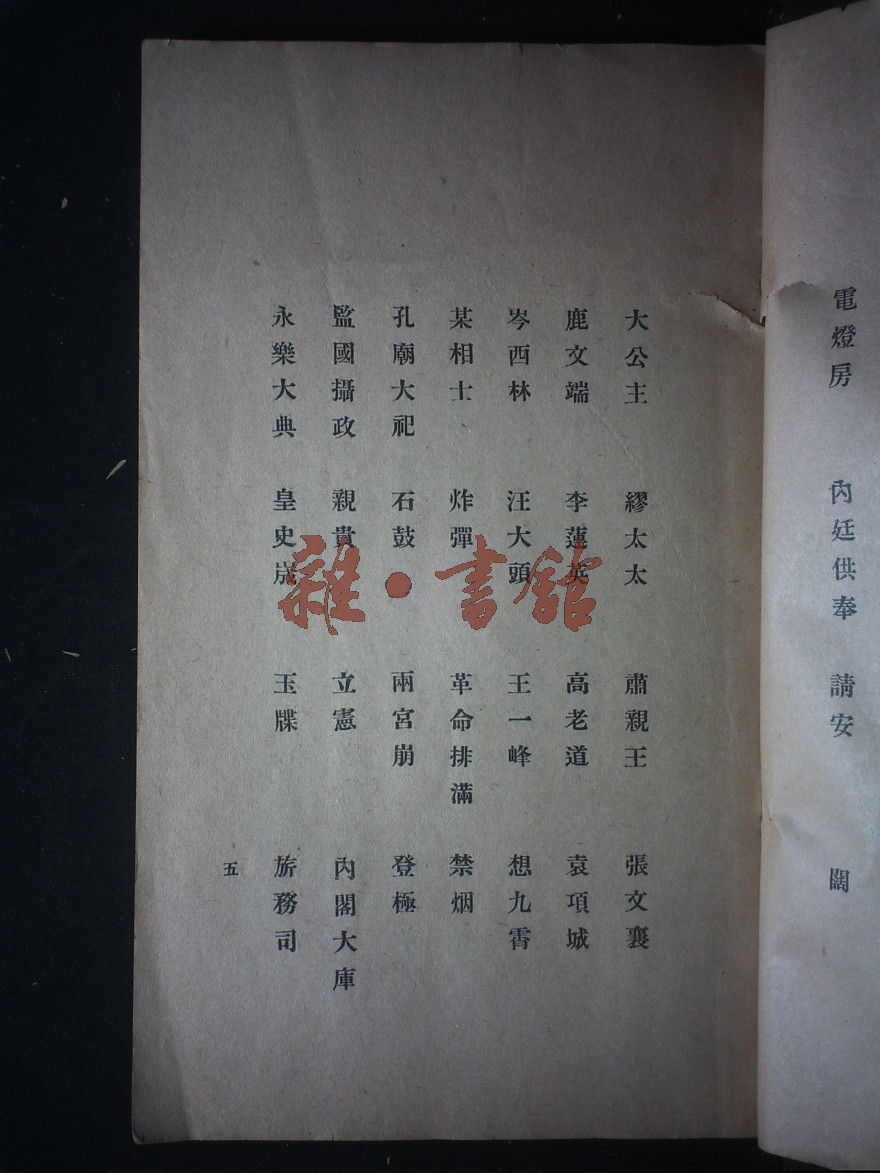 電燈房　內廷供奉　請安　闊
大公主　繆太太　肅親王　張文襄
鹿文端　李蓮英　高老道　袁項城
岑西林　汪大頭　王一峰　想九霄
某相士　炸彈　革命排滿　禁烟
孔廟大祀　石鼓　兩宮崩　登極
監國攝政　親貴　立憲　內閣大庫
永樂大典　皇史宬　玉牒　旂務司
五
雜·書館